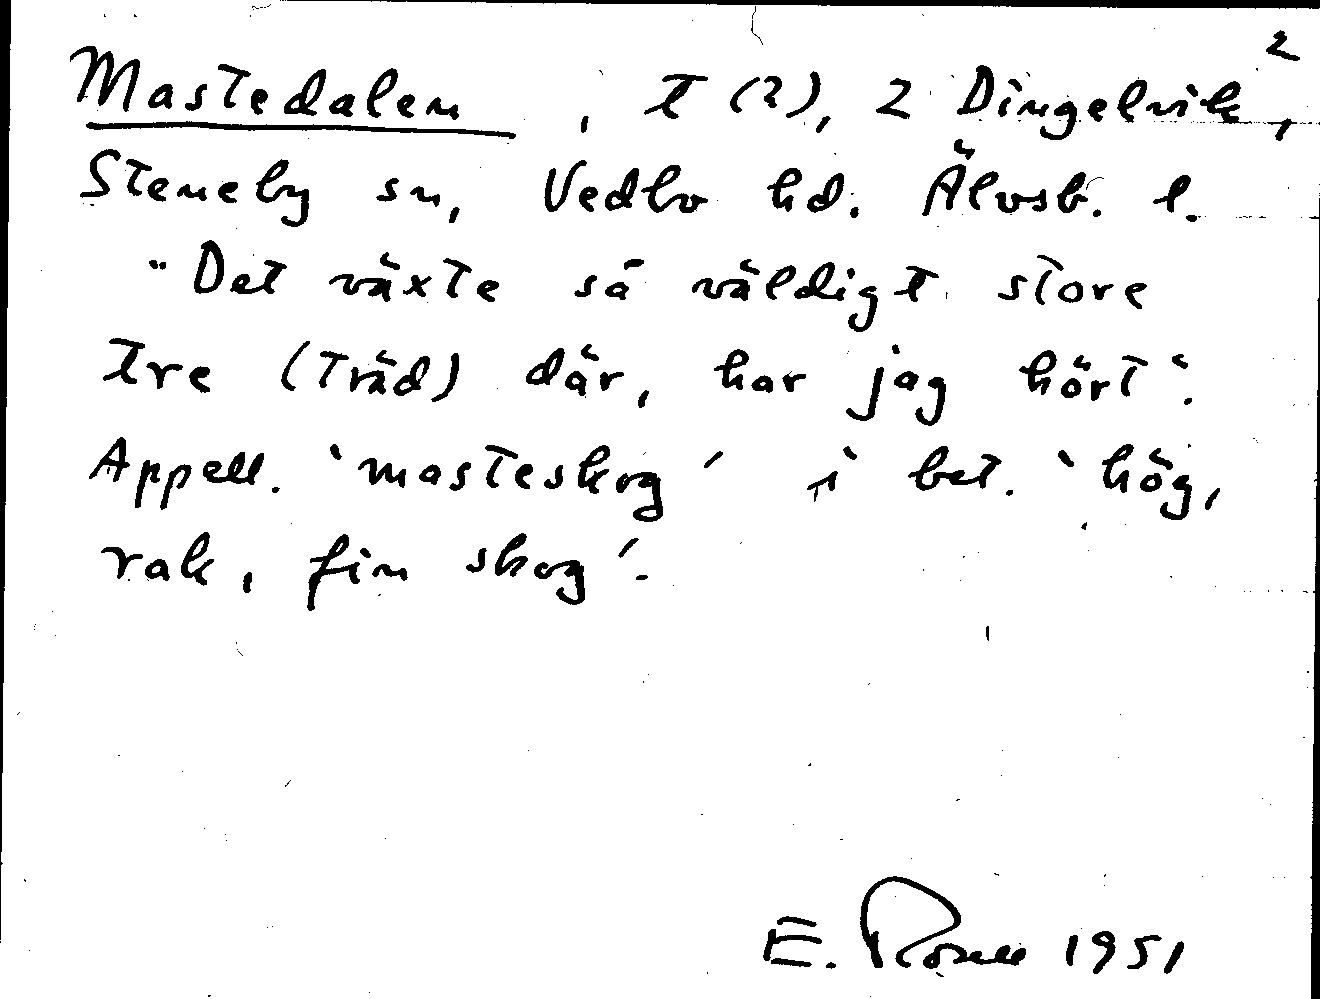 2
Mastedalen, t (?), 2 Dingelvik,
Steneby sn, Vedbo hd. Älvsb. l.
"Det växte så väldigt store
tre (träd) där, har jag hört".
Appell. 'masteskog' i bet. 'hög,
rak, fin skog'.
E. 1951